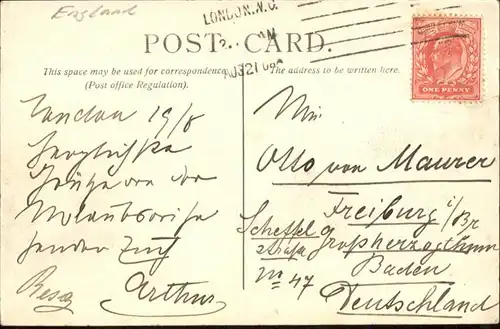 England
LONDON. N.C.
AU 21 09
POST CARD.
This space may be used for correspondence
(Post office Regulation).
The address to be written here.
ONE PENNY
London 19/8
Herzlichste
Grüße von der
Urlaubsreise
senden Euch
Arthur
Otto von Maurer
Freiburg i/Br
Großherzogthum
Baden
Deutschland
Scheffel
straße
No 47